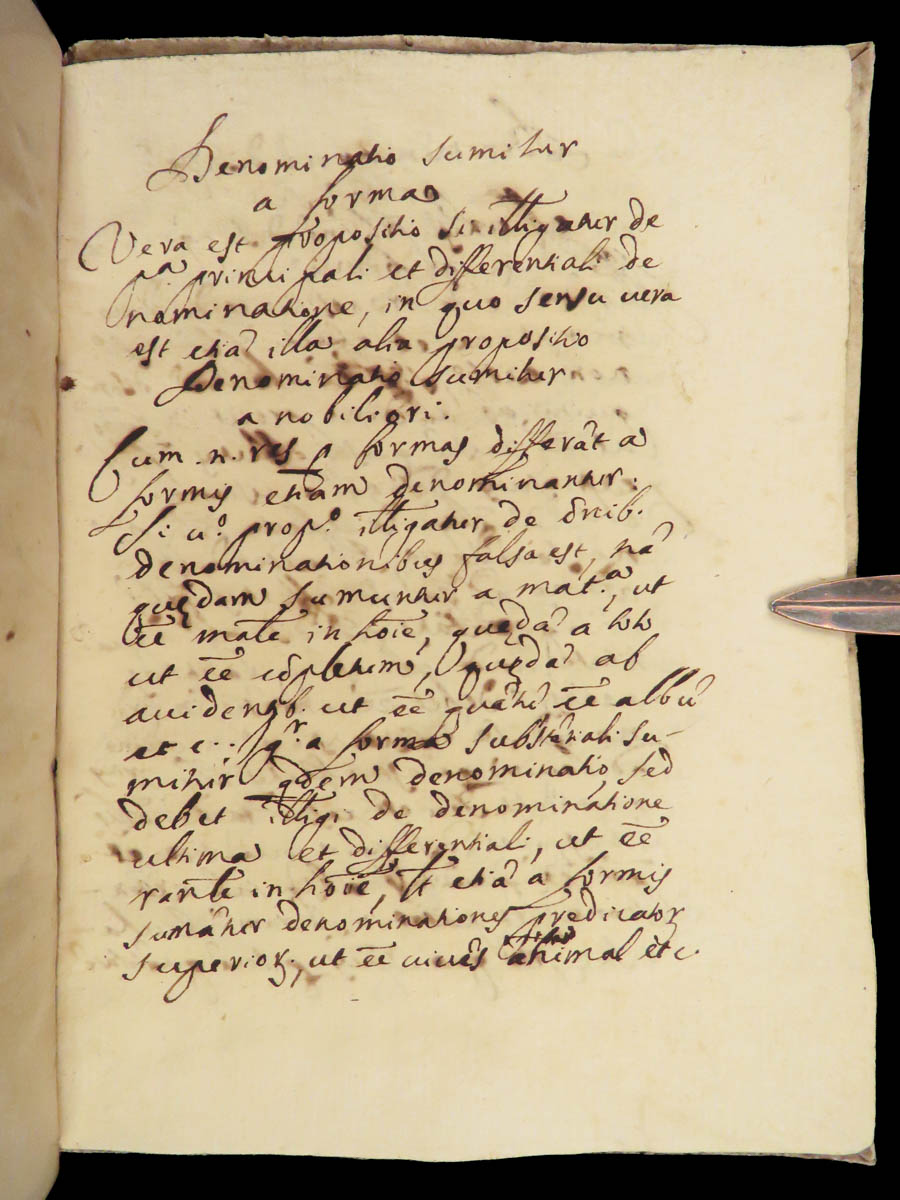 Denominatio sumitur
a forma
Vera est propositio si itlligatur de
pa principali et differentiali de
nominatione, in quo sensu vera
est etiā illa alia propositio
Denominatio sumitur
a nobiliori.
Cum .n. res p formas differāt a
formis etiam denominantur.
Si uº. propº. itlligatur de oīnib.
denominationibus falsa est, nā
quędam sumuntur a matª., ut
eē male in hoīe, quędā a toto
ut eē cōpletum, quędā ab
accidentib. ut eē quātū eē albū
et c.. gr. a forma substātiali su-
mitur qdem denominatio, sed
debet itlligi de denominatione
ultima et differentiali, ut eē
ranle in hoīe, lt etiā a formis
sumātur denominationes predicator
superioꝝ, ut eē viuēs animal etc.